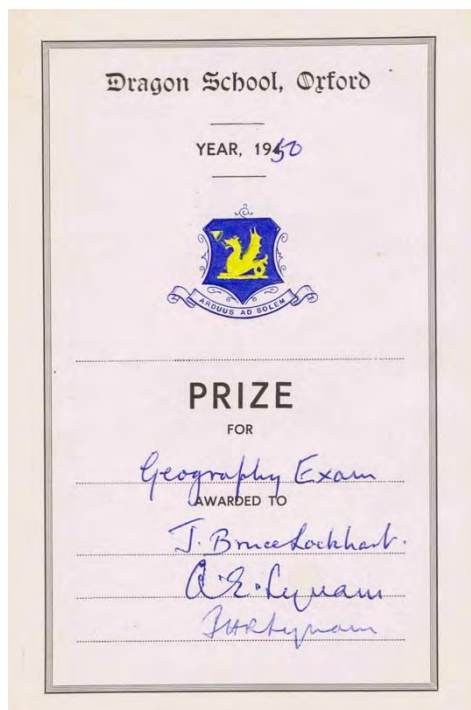 Dragon School, Oxford
YEAR, 1950
ARDUUS AD SOLEM
PRIZE
FOR
Geography Exam
AWARDED TO
J. Bruce Lockhart.
A.E. Lynam
JHR Lynam